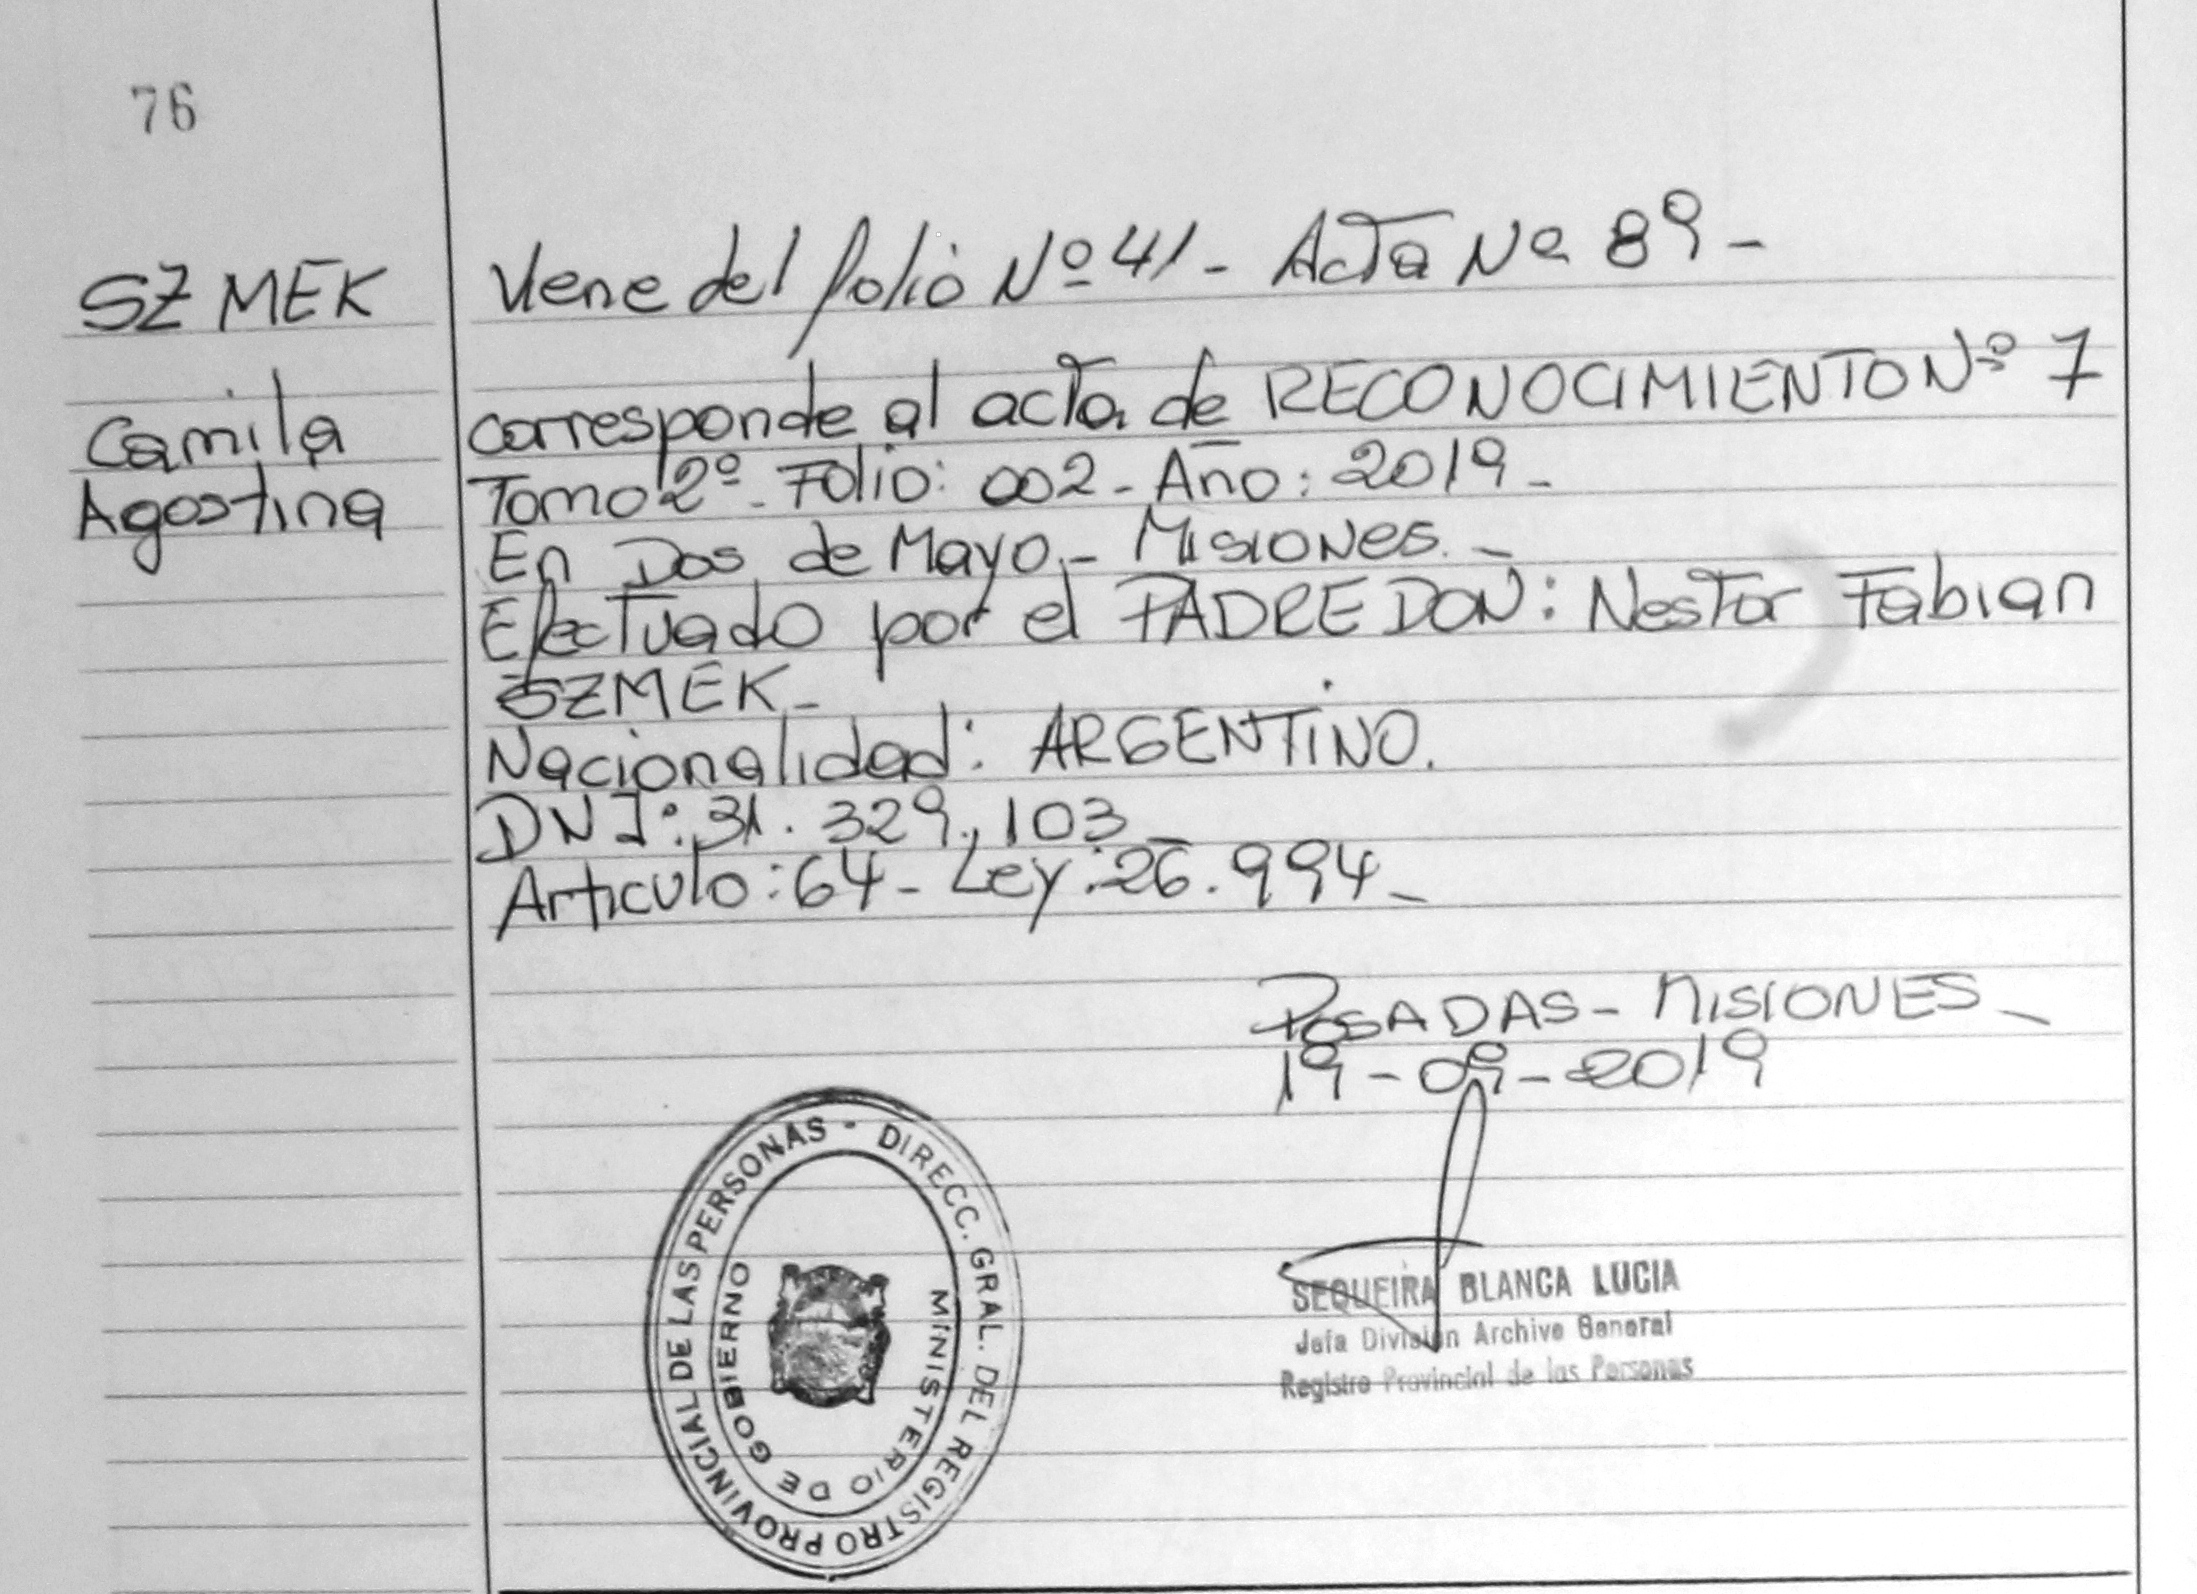 76
SZMEK
Camila
Agostina
Viene del folio Nº 41 - Acta Nº 89 -
corresponde al acta de RECONOCIMIENTO Nº 7
Tomo 2º - Folio: 002 - Año: 2019 -
En Dos de Mayo - Misiones. -
Efectuado por el PADRE DON: Nestor Fabian
SZMEK -
Nacionalidad: ARGENTINO.
DNI: 31.329.103
Articulo: 64 - Ley: 26.994 -
POSADAS - MISIONES -
19 - 09 - 2019
DIRECC. GRAL. DEL REGISTRO PROVINCIAL DE LAS PERSONAS -
MINISTERIO DE GOBIERNO
SEQUEIRA BLANCA LUCIA
Jefa División Archivo General
Registro Provincial de las Personas